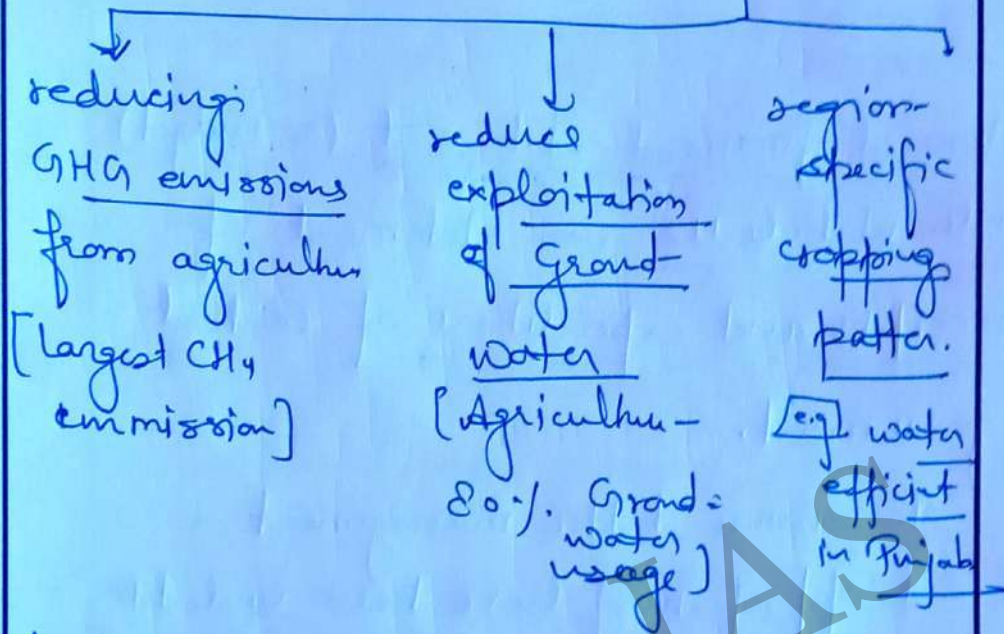 reducing
GHG emissions
from agricultu
[largest CH4
emmission]
reduce
exploitation
of Grond-
water
[Agricultu-
80%. Grond-
water
usage]
region-
specific
cropping
patter.
e.g water
efficint
in Punjab
IAS